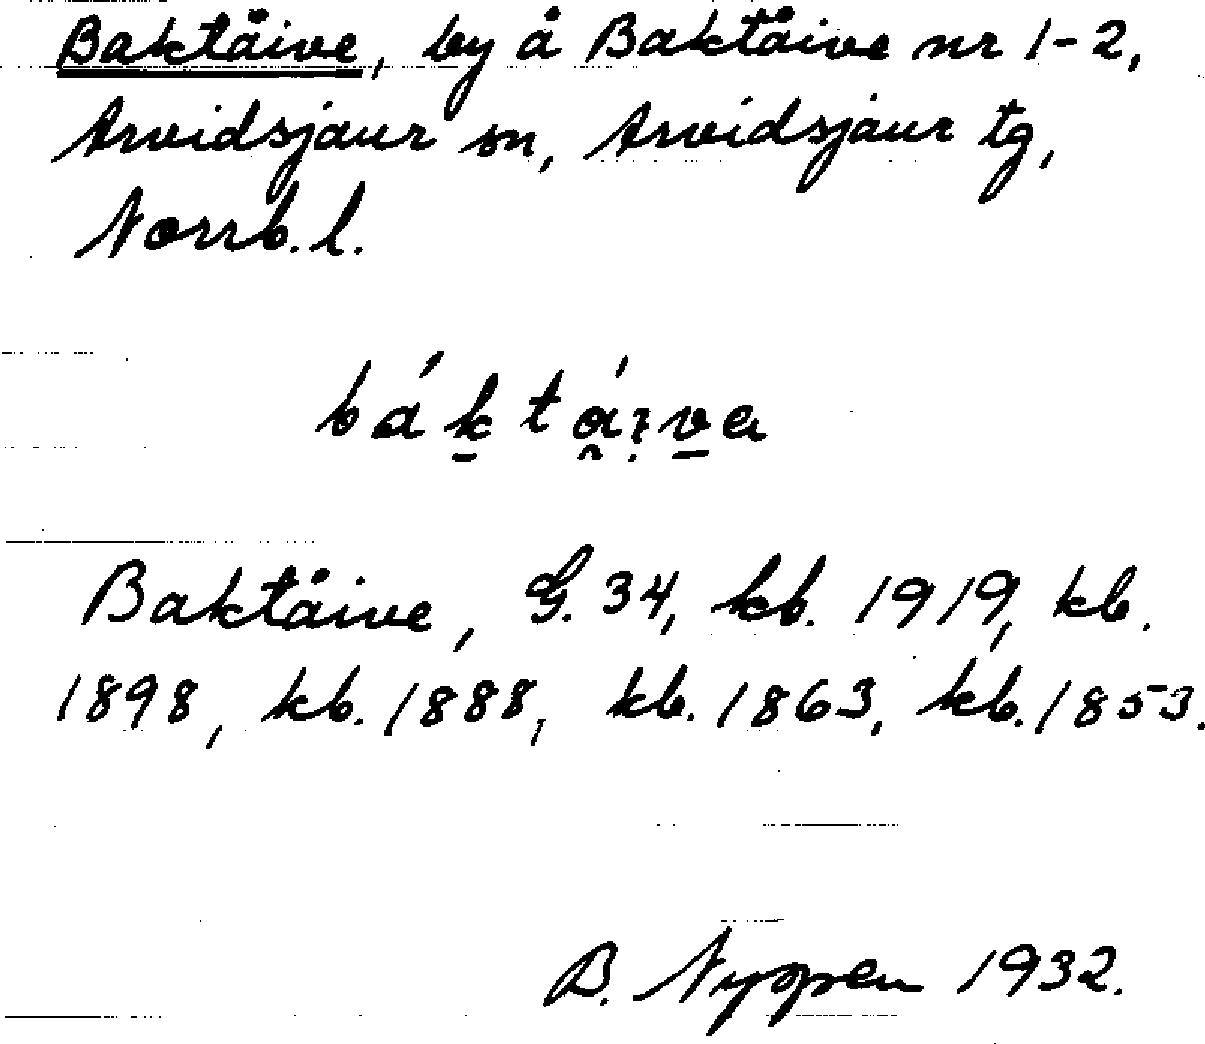 Baktåive, by å Baktåive nr 1-2,
Arvidsjaur sn, Arvidsjaur tg,
Norrb. l.
Baktåive, G. 34, kb. 1919, kb.
1898, kb. 1888, kb. 1863, kb. 1853.
B. Nyppen 1932.